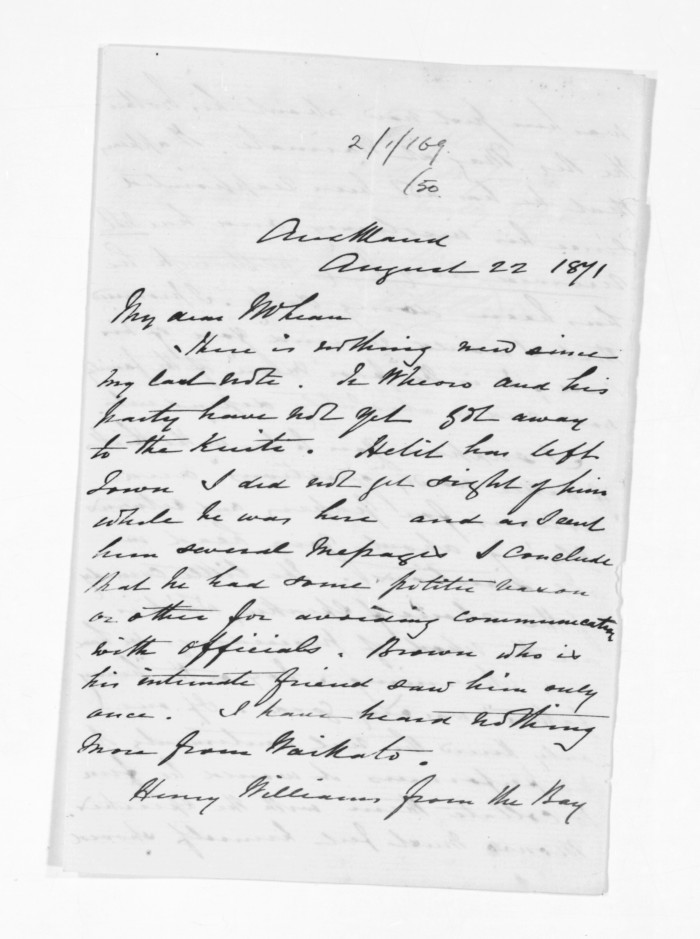 2/1/169.
/50.
Auckland
August 22 1871
My dear McLean
There is nothing new since
my last note. Te Wheoro and his
party have not yet got away
to the Kuiti. Hetit has left
Town I did not get sight of him
while he was here and as I sent
him several messages I conclude
that he had some politic reason
or other for avoiding communication
with officials. Brown who is
his intimate friend saw him only
once. I have heard nothing
more from Waikato.
Henry Williams from the Bay